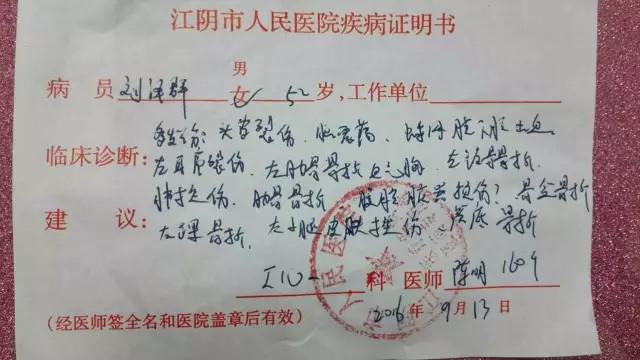 江阴市人民医院疾病证明书
病 员 刘 群 男 女 52 岁，工作单位
多发伤：头皮裂伤、脑震荡、蛛网膜下腔出血
临床诊断：左耳廓裂伤、左肋骨骨折 气胸、左 骨骨折、
肺挫伤、肋骨骨折、腹腔脏器损伤？骨盆骨折
建 议：左踝骨折、左小腿皮肤挫伤 骨折
ICU 科 医师 陈明
2016 年 9 月 13 日
(经医师签全名和医院盖章后有效)